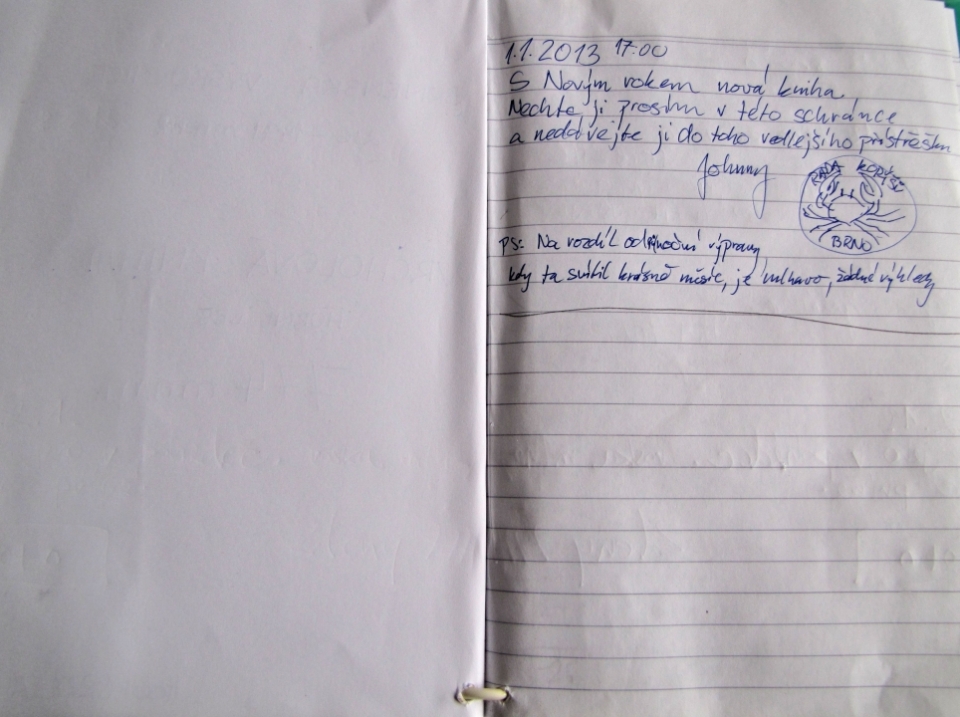 1.1.2013 17:00
S Novým rokem nová kniha.
Nechte ji prosím v této schránce
a nedávejte ji do toho vedlejšího přístřešku
Johnny
RADA KORÝŠŮ
BRNO
PS: Na rozdíl od výpravy,
kdy ta svítil krásně měsíc, je mlhavo, žádné výhledy